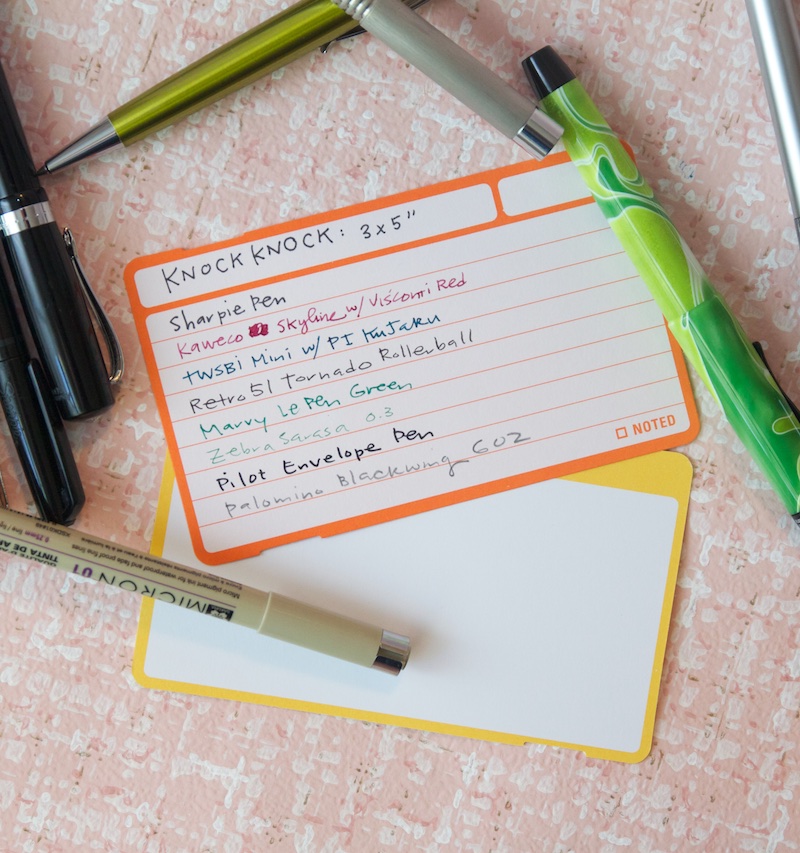 KNOCK KNOCK: 3x5"
Sharpie Pen
Kaweco Skyline w/ Visconti Red
TWSBI Mini w/ PI Kujaku
Retro 51 Tornado Rollerball
Marvy Le Pen Green
Zebra Sarasa 0.3
Pilot Envelope Pen
Palomino Blackwing 602
NOTED
MICRON 01
0.25mm
Micro pigment ink for waterproof and fade proof lines